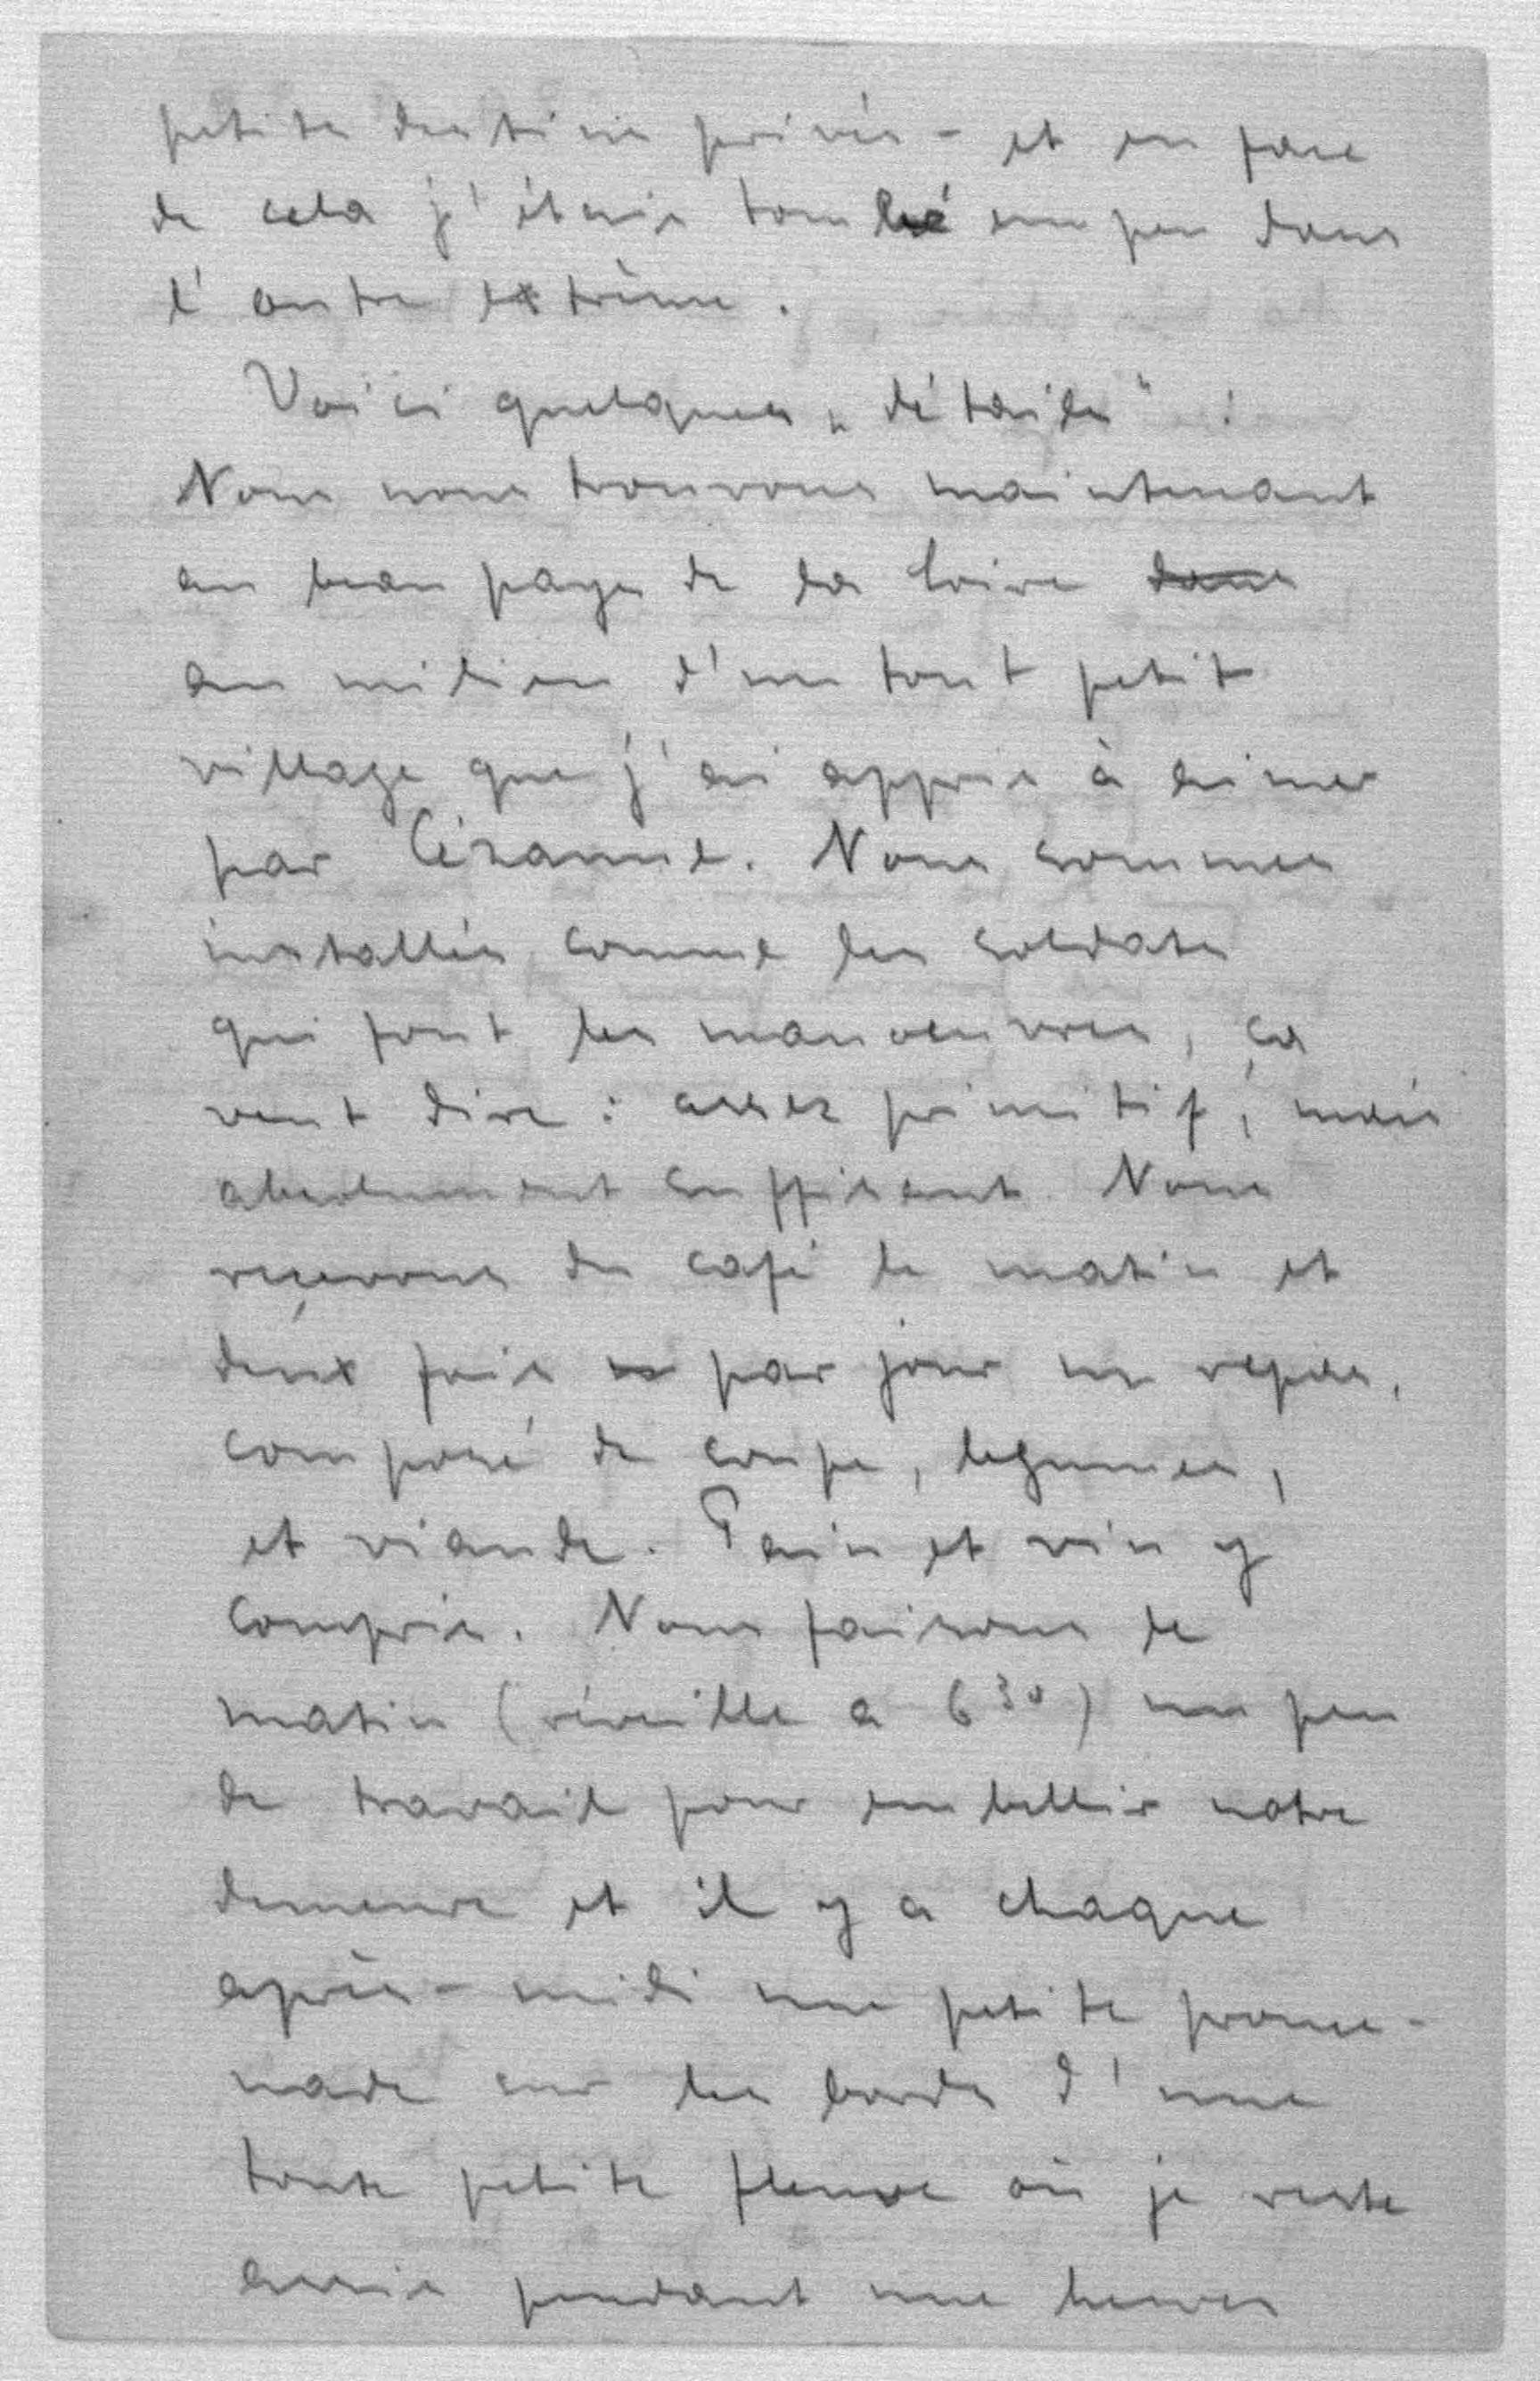 petite destinée privée - et en face
de cela j'étais tombé un peu dans
l'autre extrème.
Voici quelques „détails" :
Nous nous trouvons maintenant
au beau pays de la Loire dans
au milieu d'un tout petit
village que j'ai appris à aimer
par Cézanne. Nous sommes
installés comme les soldats
qui font les manoeuvres, ça
veut dire : assez primitif, mais
absolument suffisant. Nous
reçevons du café le matin et
deux fois par jour un repas,
composé de soupe, legumes,
et viande. Pain et vin y
compris. Nous faisons le
matin (réveille a 6 30) un peu
de travail pour embellir notre
demeure et il y a chaque
après-midi une petite prome-
nade sur les bords d'une
toute petite fleuve où je reste
assis pendant une heures